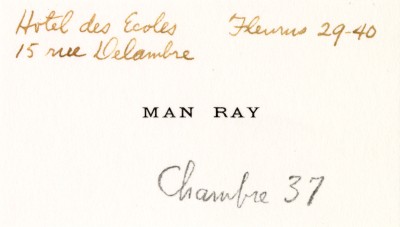 Hotel des Ecoles Fleurus 29-40
15 rue Delambre
MAN RAY
Chambre 37